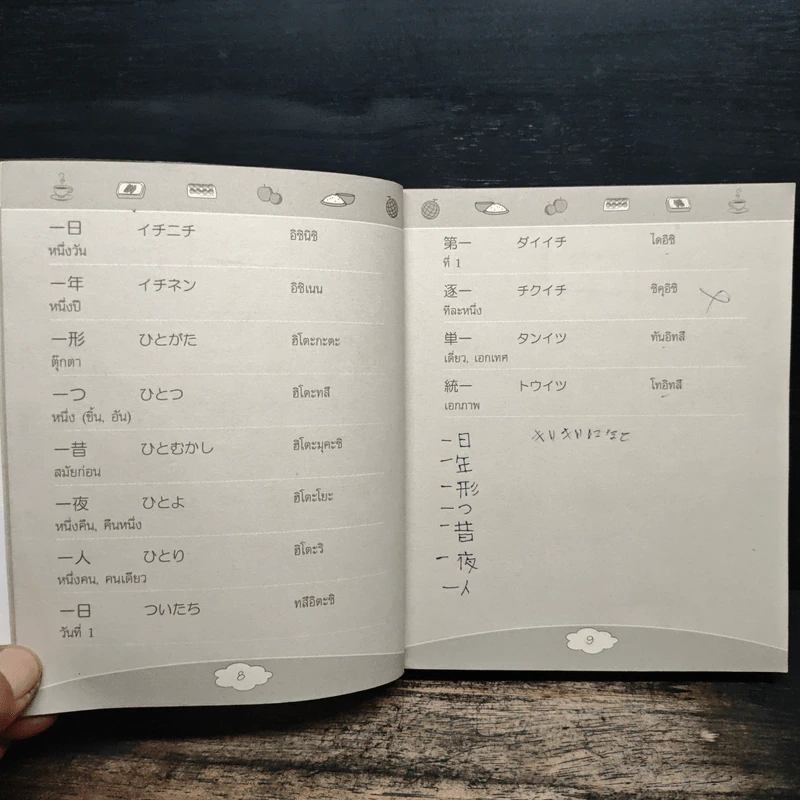 一日 イチニチ อิชินิชิ
หนึ่งวัน
一年 イチネン อิชิเนน
หนึ่งปี
一形 ひとがた ฮิโตะกะตะ
ตุ๊กตา
一つ ひとつ ฮิโตะทสึ
หนึ่ง (ชิ้น, อัน)
一昔 ひとむかし ฮิโตะมุคะชิ
สมัยก่อน
一夜 ひとよ ฮิโตะโยะ
หนึ่งคืน, คืนหนึ่ง
一人 ひとり ฮิโตะริ
หนึ่งคน, คนเดียว
一日 ついたち ทสึอิตะชิ
วันที่ 1
8
第一 ダイイチ ไดอิชิ
ที่ 1
逐一 チクイチ ชิคุอิชิ
ทีละหนึ่ง
単一 タンイツ ทันอิทสึ
เดี่ยว, เอกเทศ
統一 トウイツ โทอิทสึ
เอกภาพ
一日
一年
一形
一つ
一昔
一夜
一人
9